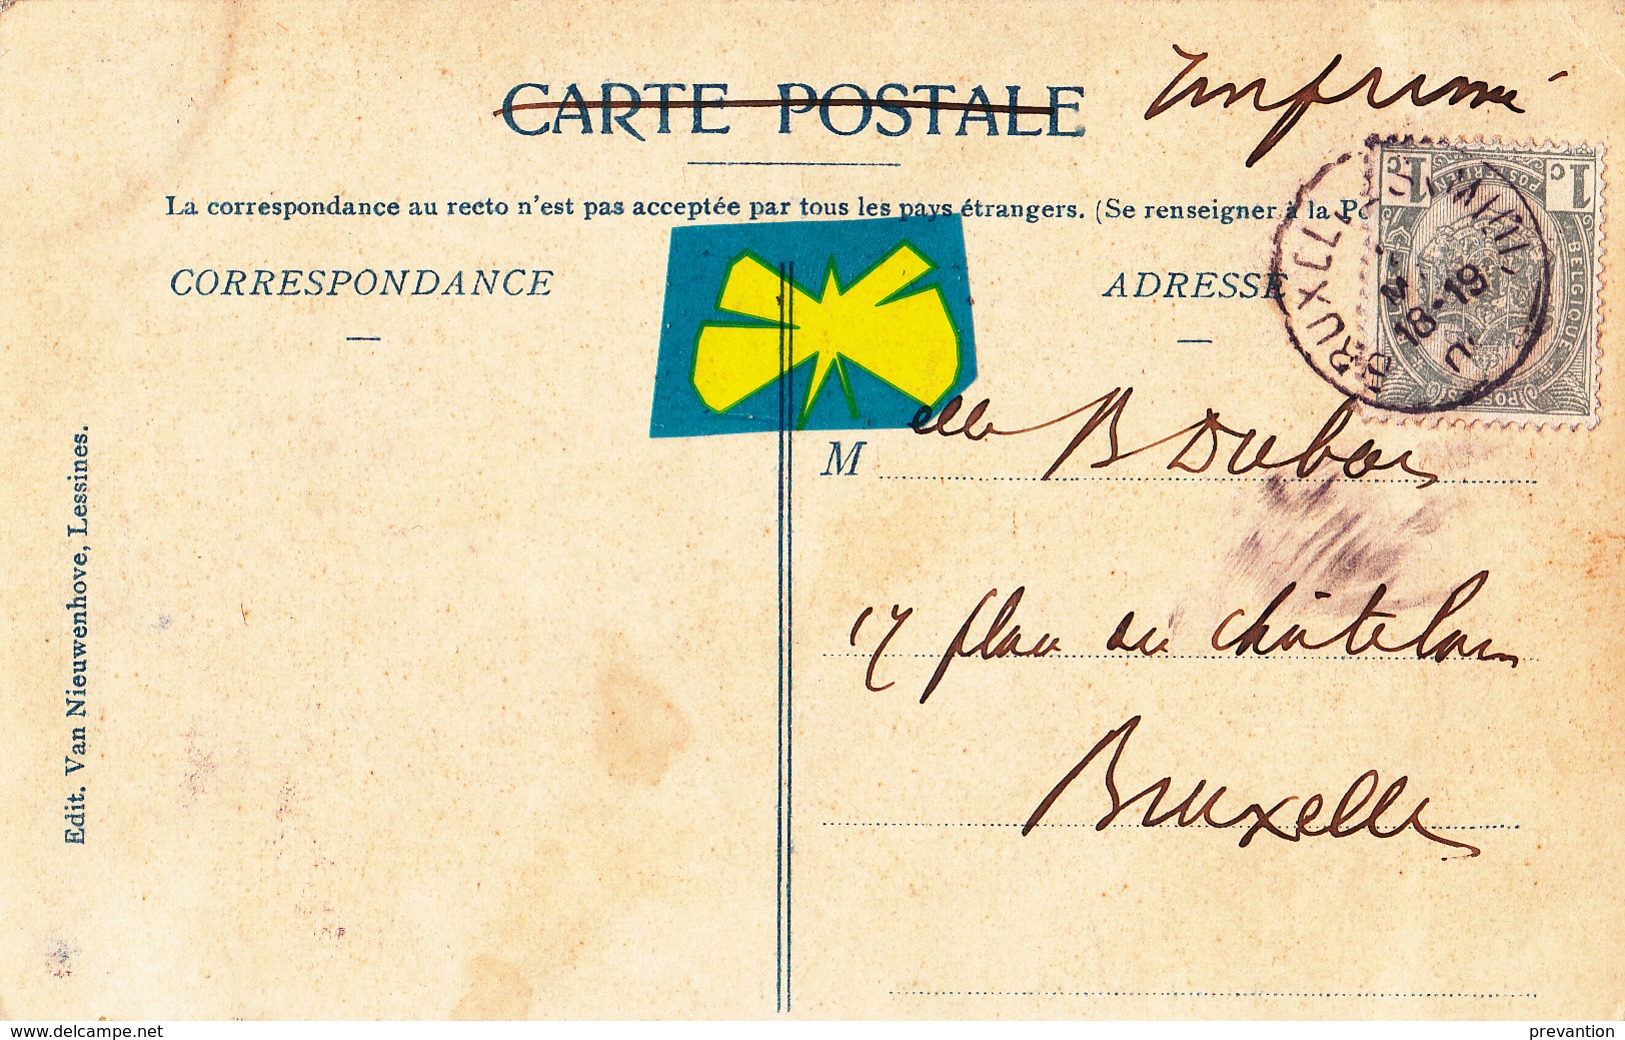 Imprimé
CARTE POSTALE
La correspondance au recto n'est pas acceptée par tous les pays étrangers. (Se renseigner à la Po
CORRESPONDANCE
ADRESSE
1c
1c
POSTERIJEN
BELGIQUE
POSTES
BRUXELLES
18-19
M elle B Dubois
17 place du Châtelain
Bruxelles
Edit. Van Nieuwenhove, Lessines.
www.delcampe.net
prevantion